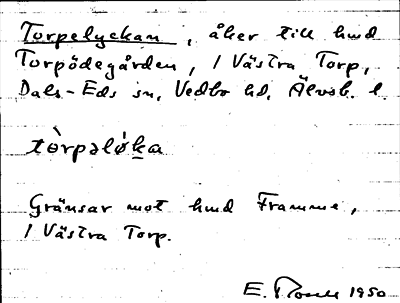 Torpelyckan, åker till hmd
Torpödegården, 1 Västra Torp,
Dals-Eds sn, Vedbo hd, Älvsb. l.
tòrpəlø̀ka
Gränsar mot hmd Framme,
1 Västra Torp.
E. 1950